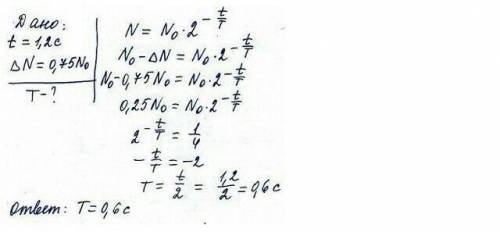 Дано:
t = 1,2 с
ΔN = 0,75N₀
T - ?
N = N₀ · 2^(-t/T)
N₀ - ΔN = N₀ · 2^(-t/T)
N₀ - 0,75N₀ = N₀ · 2^(-t/T)
0,25N₀ = N₀ · 2^(-t/T)
2^(-t/T) = 1/4
-t/T = -2
T = t/2 = 1,2/2 = 0,6 с
Ответ: T = 0,6 с